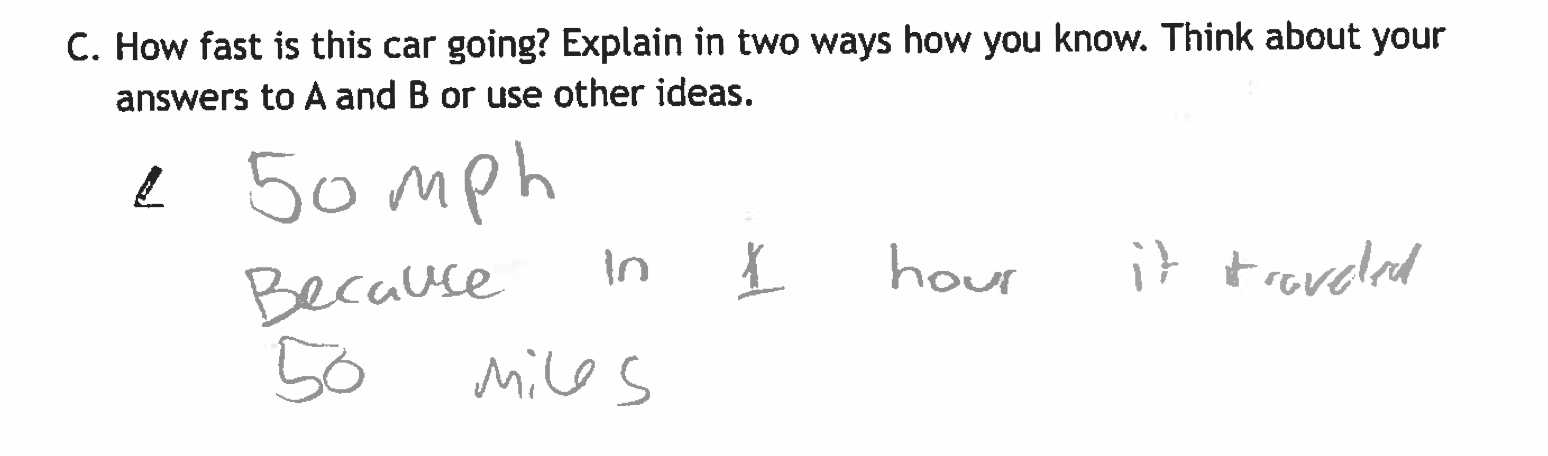 C. How fast is this car going? Explain in two ways how you know. Think about your
answers to A and B or use other ideas.
50 mph
Because in 1 hour it traveled
50 miles